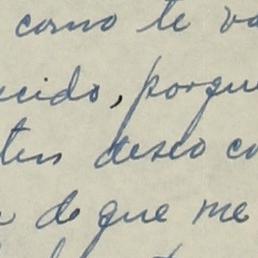 como te va
cido, porque
ten deseo co
de que me